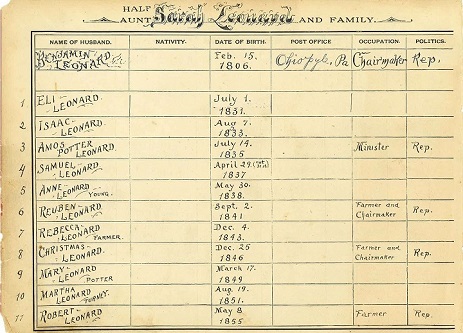 HALF
AUNT Sarah Leonard AND FAMILY.
NAME OF HUSBAND. NATIVITY. DATE OF BIRTH. POST OFFICE OCCUPATION. POLITICS.
BENJAMIN Feb. 15, Ohiopyle, Pa Chairmaker Rep.
LEONARD 1806.
1 ELI July 1.
LEONARD. 1831.
2 ISAAC Aug 7.
LEONARD. 1833.
3 AMOS POTTER July 14. Minister Rep.
LEONARD. 1835
4 SAMUEL April 29.
LEONARD. 1837
5 ANNE May 30.
LEONARD YOUNG. 1838.
6 REUBEN Sept. 2. Farmer and Rep.
LEONARD. 1841 Chairmaker
7 REBECCA Dec. 4.
LEONARD FARMER. 1843.
8 CHRISTMAS Dec. 25 Farmer and Rep.
LEONARD. 1846 Chairmaker
9 MARY March 17.
LEONARD POTTER 1849
10 MARTHA Aug. 19.
LEONARD TURNEY. 1851.
11 ROBERT May 8 Farmer Rep.
LEONARD 1855